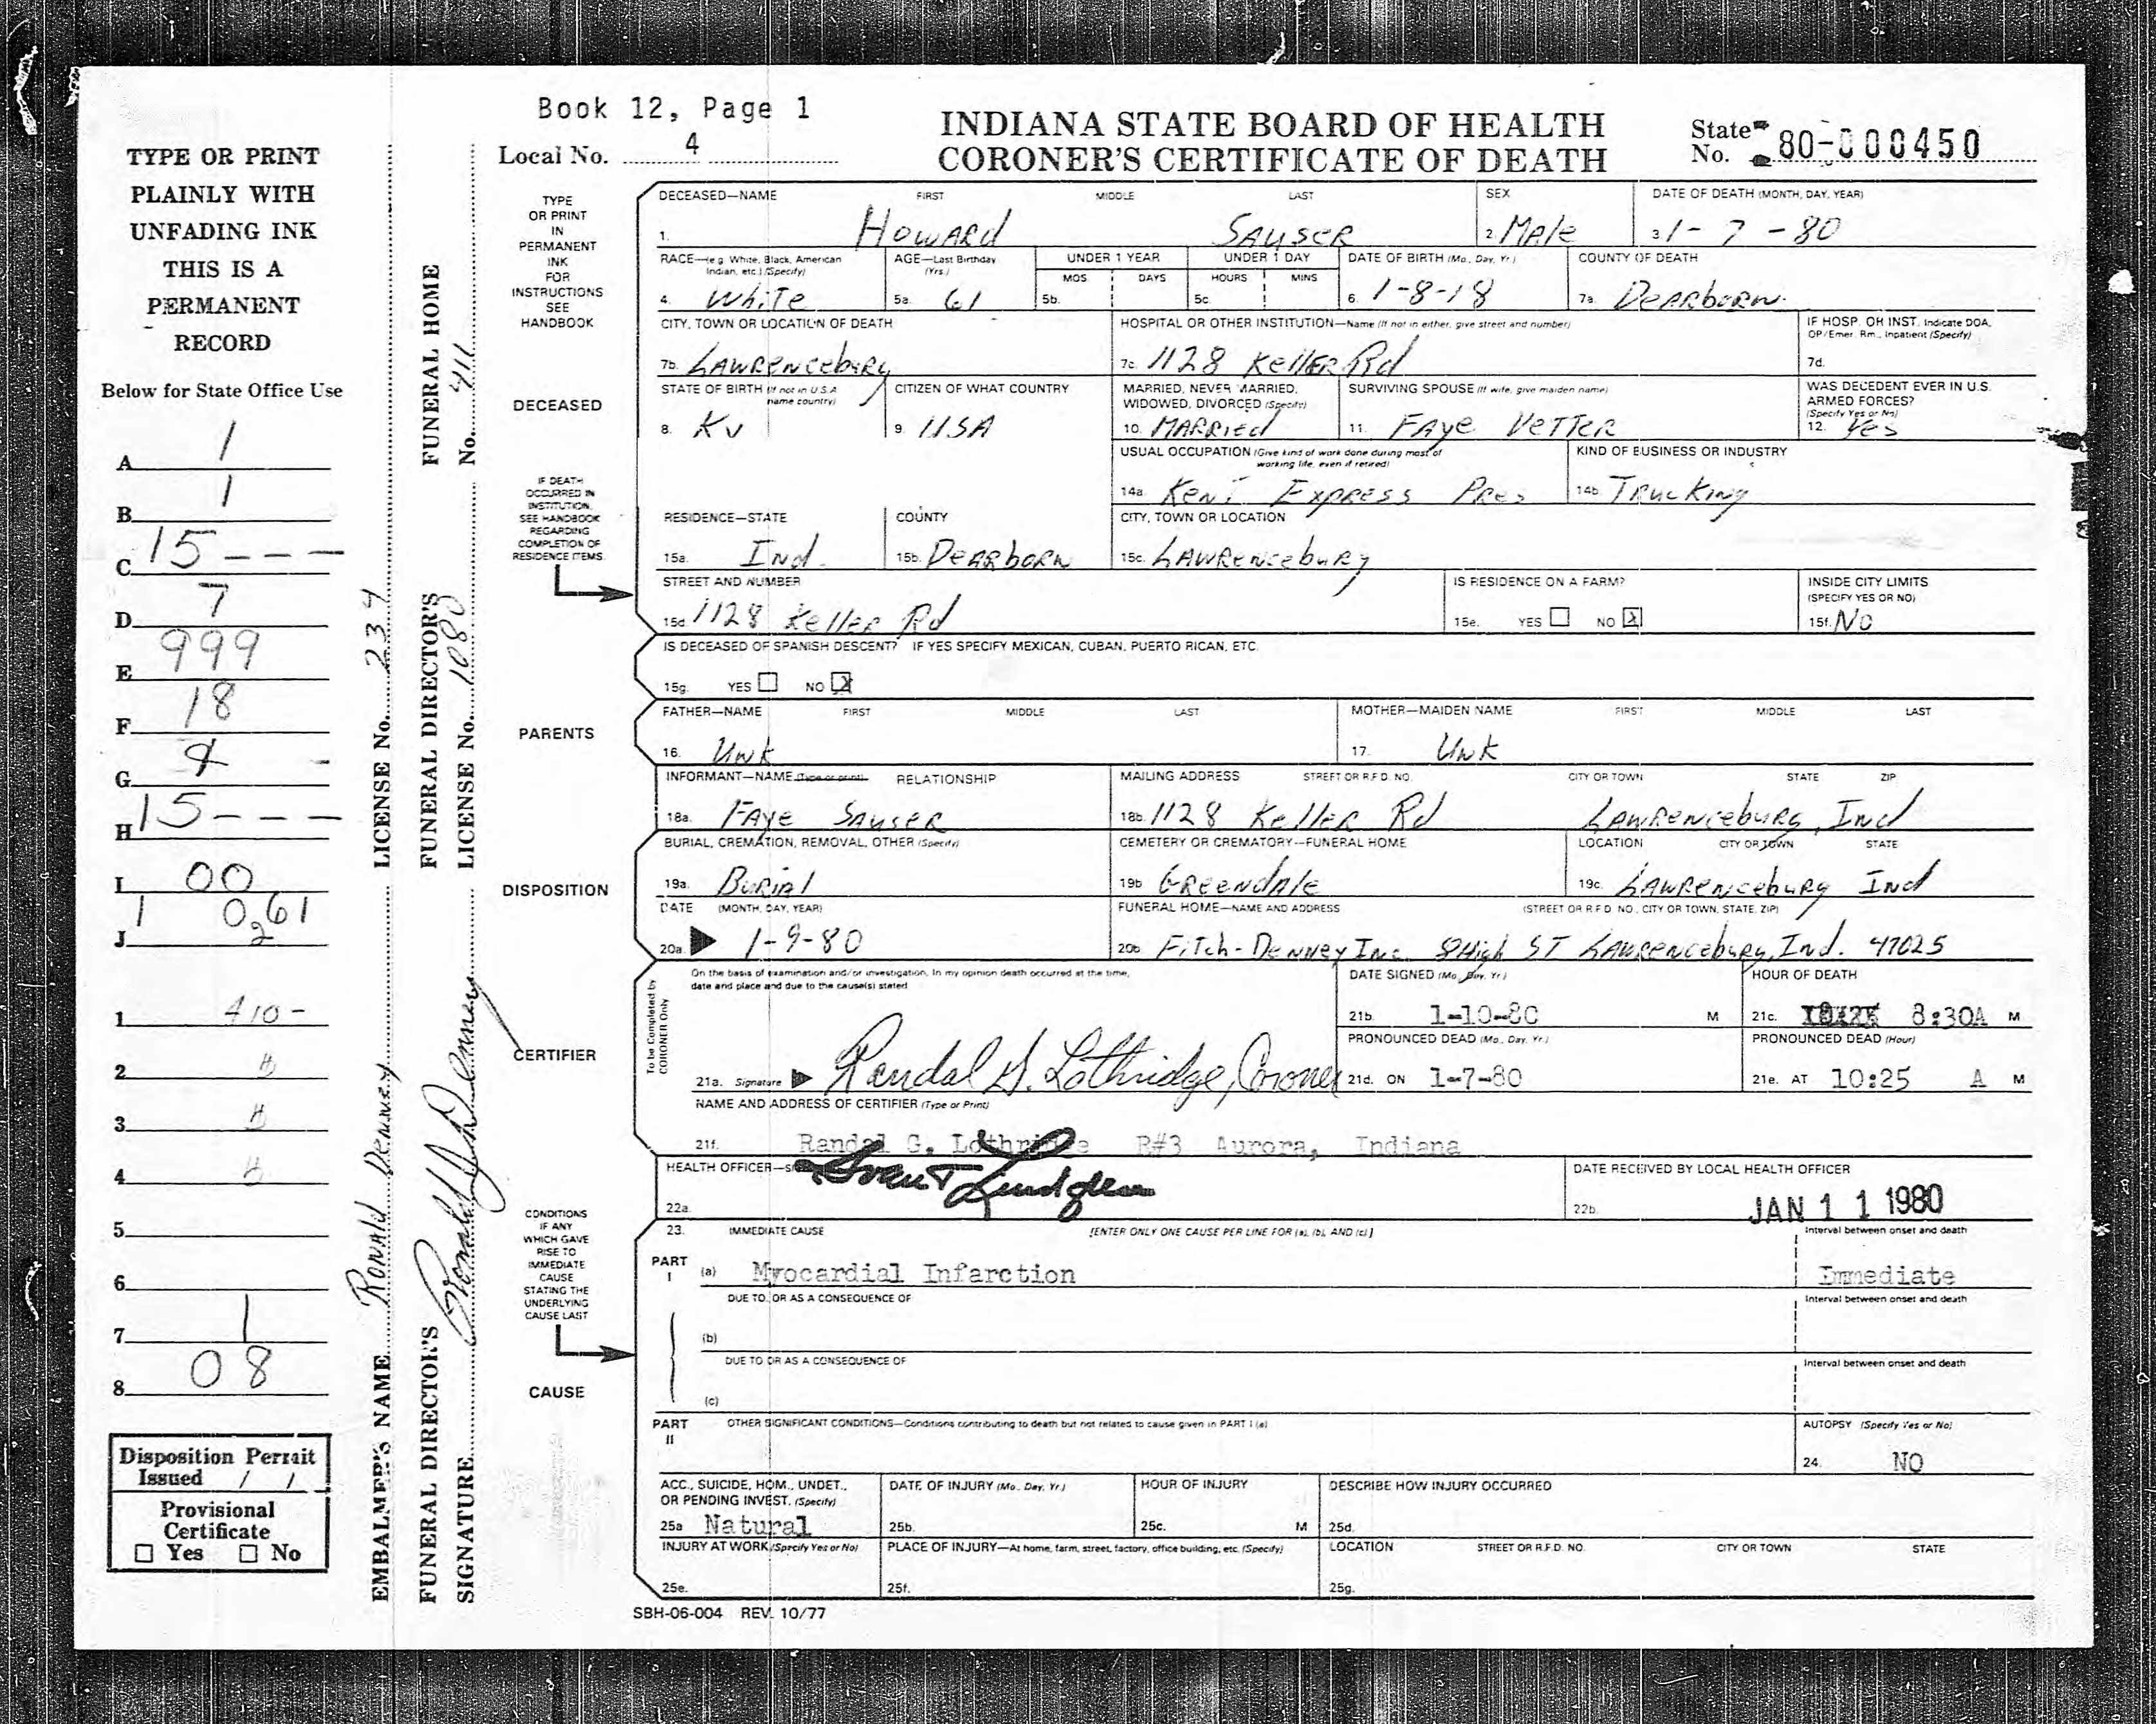 Book 12, Page 1
Local No. 4
INDIANA STATE BOARD OF HEALTH
CORONER'S CERTIFICATE OF DEATH
State No. 80-000450
TYPE OR PRINT
PLAINLY WITH
UNFADING INK
THIS IS A
PERMANENT
RECORD
Below for State Office Use
A 1
B 1
C 15---
D 7
E 999
F 18
G 4 -
H 15---
I 00
J 1 0261
1 410-
2
3
4
5
6
7 1
8 08
Disposition Permit
Issued / /
Provisional
Certificate
☐ Yes ☐ No
EMBALMER'S NAME Ronald Denney LICENSE No. 234
FUNERAL DIRECTOR'S
SIGNATURE Ronald J Denney
FUNERAL DIRECTOR'S
LICENSE No. 1080
FUNERAL HOME
No. 411
TYPE
OR PRINT
IN
PERMANENT
INK
FOR
INSTRUCTIONS
SEE
HANDBOOK
DECEASED
IF DEATH
OCCURRED IN
INSTITUTION,
SEE HANDBOOK
REGARDING
COMPLETION OF
RESIDENCE ITEMS.
PARENTS
DISPOSITION
CERTIFIER
CONDITIONS
IF ANY
WHICH GAVE
RISE TO
IMMEDIATE
CAUSE
STATING THE
UNDERLYING
CAUSE LAST
CAUSE
DECEASED—NAME FIRST MIDDLE LAST SEX DATE OF DEATH (MONTH, DAY, YEAR)
1. Howard Sauser 2. Male 3. 1-7-80
RACE—(e.g. White, Black, American Indian, etc.) (Specify) AGE—Last Birthday (Yrs.) UNDER 1 YEAR UNDER 1 DAY DATE OF BIRTH (Mo., Day, Yr.) COUNTY OF DEATH
MOS. DAYS HOURS MINS
4. White 5a. 61 5b. 5c. 6. 1-8-18 7a. Dearborn
CITY, TOWN OR LOCATION OF DEATH HOSPITAL OR OTHER INSTITUTION—Name (If not in either, give street and number) IF HOSP. OR INST. Indicate DOA, OP/Emer. Rm., Inpatient (Specify)
7b. Lawrenceburg 7c. 1128 Keller Rd 7d.
STATE OF BIRTH (If not in U.S.A. name country) CITIZEN OF WHAT COUNTRY MARRIED, NEVER MARRIED, WIDOWED, DIVORCED (Specify) SURVIVING SPOUSE (If wife, give maiden name) WAS DECEDENT EVER IN U.S. ARMED FORCES? (Specify Yes or No)
8. Ky 9. USA 10. Married 11. Faye Vetter 12. Yes
USUAL OCCUPATION (Give kind of work done during most of working life, even if retired) KIND OF BUSINESS OR INDUSTRY
14a. Kent Express Pres 14b. Trucking
RESIDENCE—STATE COUNTY CITY, TOWN OR LOCATION
15a. Ind. 15b. Dearborn 15c. Lawrenceburg
STREET AND NUMBER IS RESIDENCE ON A FARM? INSIDE CITY LIMITS (SPECIFY YES OR NO)
15d. 1128 Keller Rd 15e. YES ☐ NO ☒ 15f. No
IS DECEASED OF SPANISH DESCENT? IF YES SPECIFY MEXICAN, CUBAN, PUERTO RICAN, ETC.
15g. YES ☐ NO ☒
FATHER—NAME FIRST MIDDLE LAST MOTHER—MAIDEN NAME FIRST MIDDLE LAST
16. Unk 17. Unk
INFORMANT—NAME (Type or print) RELATIONSHIP MAILING ADDRESS STREET OR R.F.D. NO. CITY OR TOWN STATE ZIP
18a. Faye Sauser 18b. 1128 Keller Rd Lawrenceburg, Ind
BURIAL, CREMATION, REMOVAL, OTHER (Specify) CEMETERY OR CREMATORY—FUNERAL HOME LOCATION CITY OR TOWN STATE
19a. Burial 19b. Greendale 19c. Lawrenceburg Ind
DATE (MONTH, DAY, YEAR) FUNERAL HOME—NAME AND ADDRESS (STREET OR R.F.D. NO., CITY OR TOWN, STATE, ZIP)
20a. 1-9-80 20b. Fitch-Denney Inc High ST Lawrenceburg, Ind. 47025
To be Completed by CORONER Only
On the basis of examination and/or investigation, in my opinion death occurred at the time, date and place and due to the cause(s) stated
DATE SIGNED (Mo., Day, Yr.) HOUR OF DEATH
21b. 1-10-80 M 21c. 8:30A M
PRONOUNCED DEAD (Mo., Day, Yr.) PRONOUNCED DEAD (Hour)
21a. Signature Randal G. Lothridge, Coroner 21d. ON 1-7-80 21e. AT 10:25 A M
NAME AND ADDRESS OF CERTIFIER (Type or Print)
21f. Randal G. Lothridge R#3 Aurora, Indiana
HEALTH OFFICER— DATE RECEIVED BY LOCAL HEALTH OFFICER
22a. 22b. JAN 11 1980
23. IMMEDIATE CAUSE [ENTER ONLY ONE CAUSE PER LINE FOR (a), (b), AND (c)] Interval between onset and death
PART I (a) Myocardial Infarction Immediate
DUE TO, OR AS A CONSEQUENCE OF Interval between onset and death
(b)
DUE TO OR AS A CONSEQUENCE OF Interval between onset and death
(c)
PART II OTHER SIGNIFICANT CONDITIONS—Conditions contributing to death but not related to cause given in PART I (a) AUTOPSY (Specify Yes or No)
24. NO
ACC., SUICIDE, HOM., UNDET., OR PENDING INVEST. (Specify) DATE OF INJURY (Mo., Day, Yr.) HOUR OF INJURY DESCRIBE HOW INJURY OCCURRED
25a Natural 25b. 25c. M 25d.
INJURY AT WORK (Specify Yes or No) PLACE OF INJURY—At home, farm, street, factory, office building, etc. (Specify) LOCATION STREET OR R.F.D. NO. CITY OR TOWN STATE
25e. 25f. 25g.
SBH-06-004 REV. 10/77